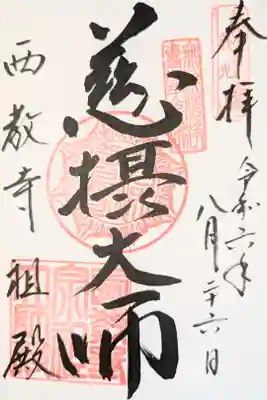 奉拝
令和六年
八月二十六日
慈摂大師
西教寺 祖殿